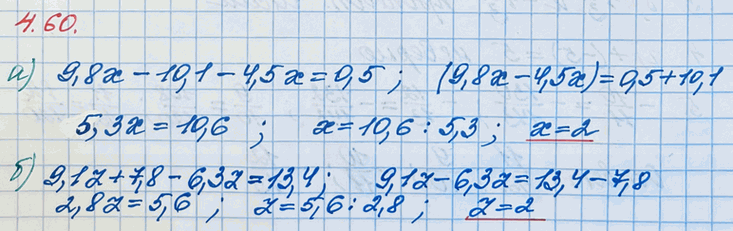 4.60.
а) 9,8x - 10,1 - 4,5x = 0,5 ; (9,8x - 4,5x) = 0,5 + 10,1
5,3x = 10,6 ; x = 10,6 : 5,3 ; x = 2
б) 9,1z + 7,8 - 6,3z = 13,4 ; 9,1z - 6,3z = 13,4 - 7,8
2,8z = 5,6 ; z = 5,6 : 2,8 ; z = 2